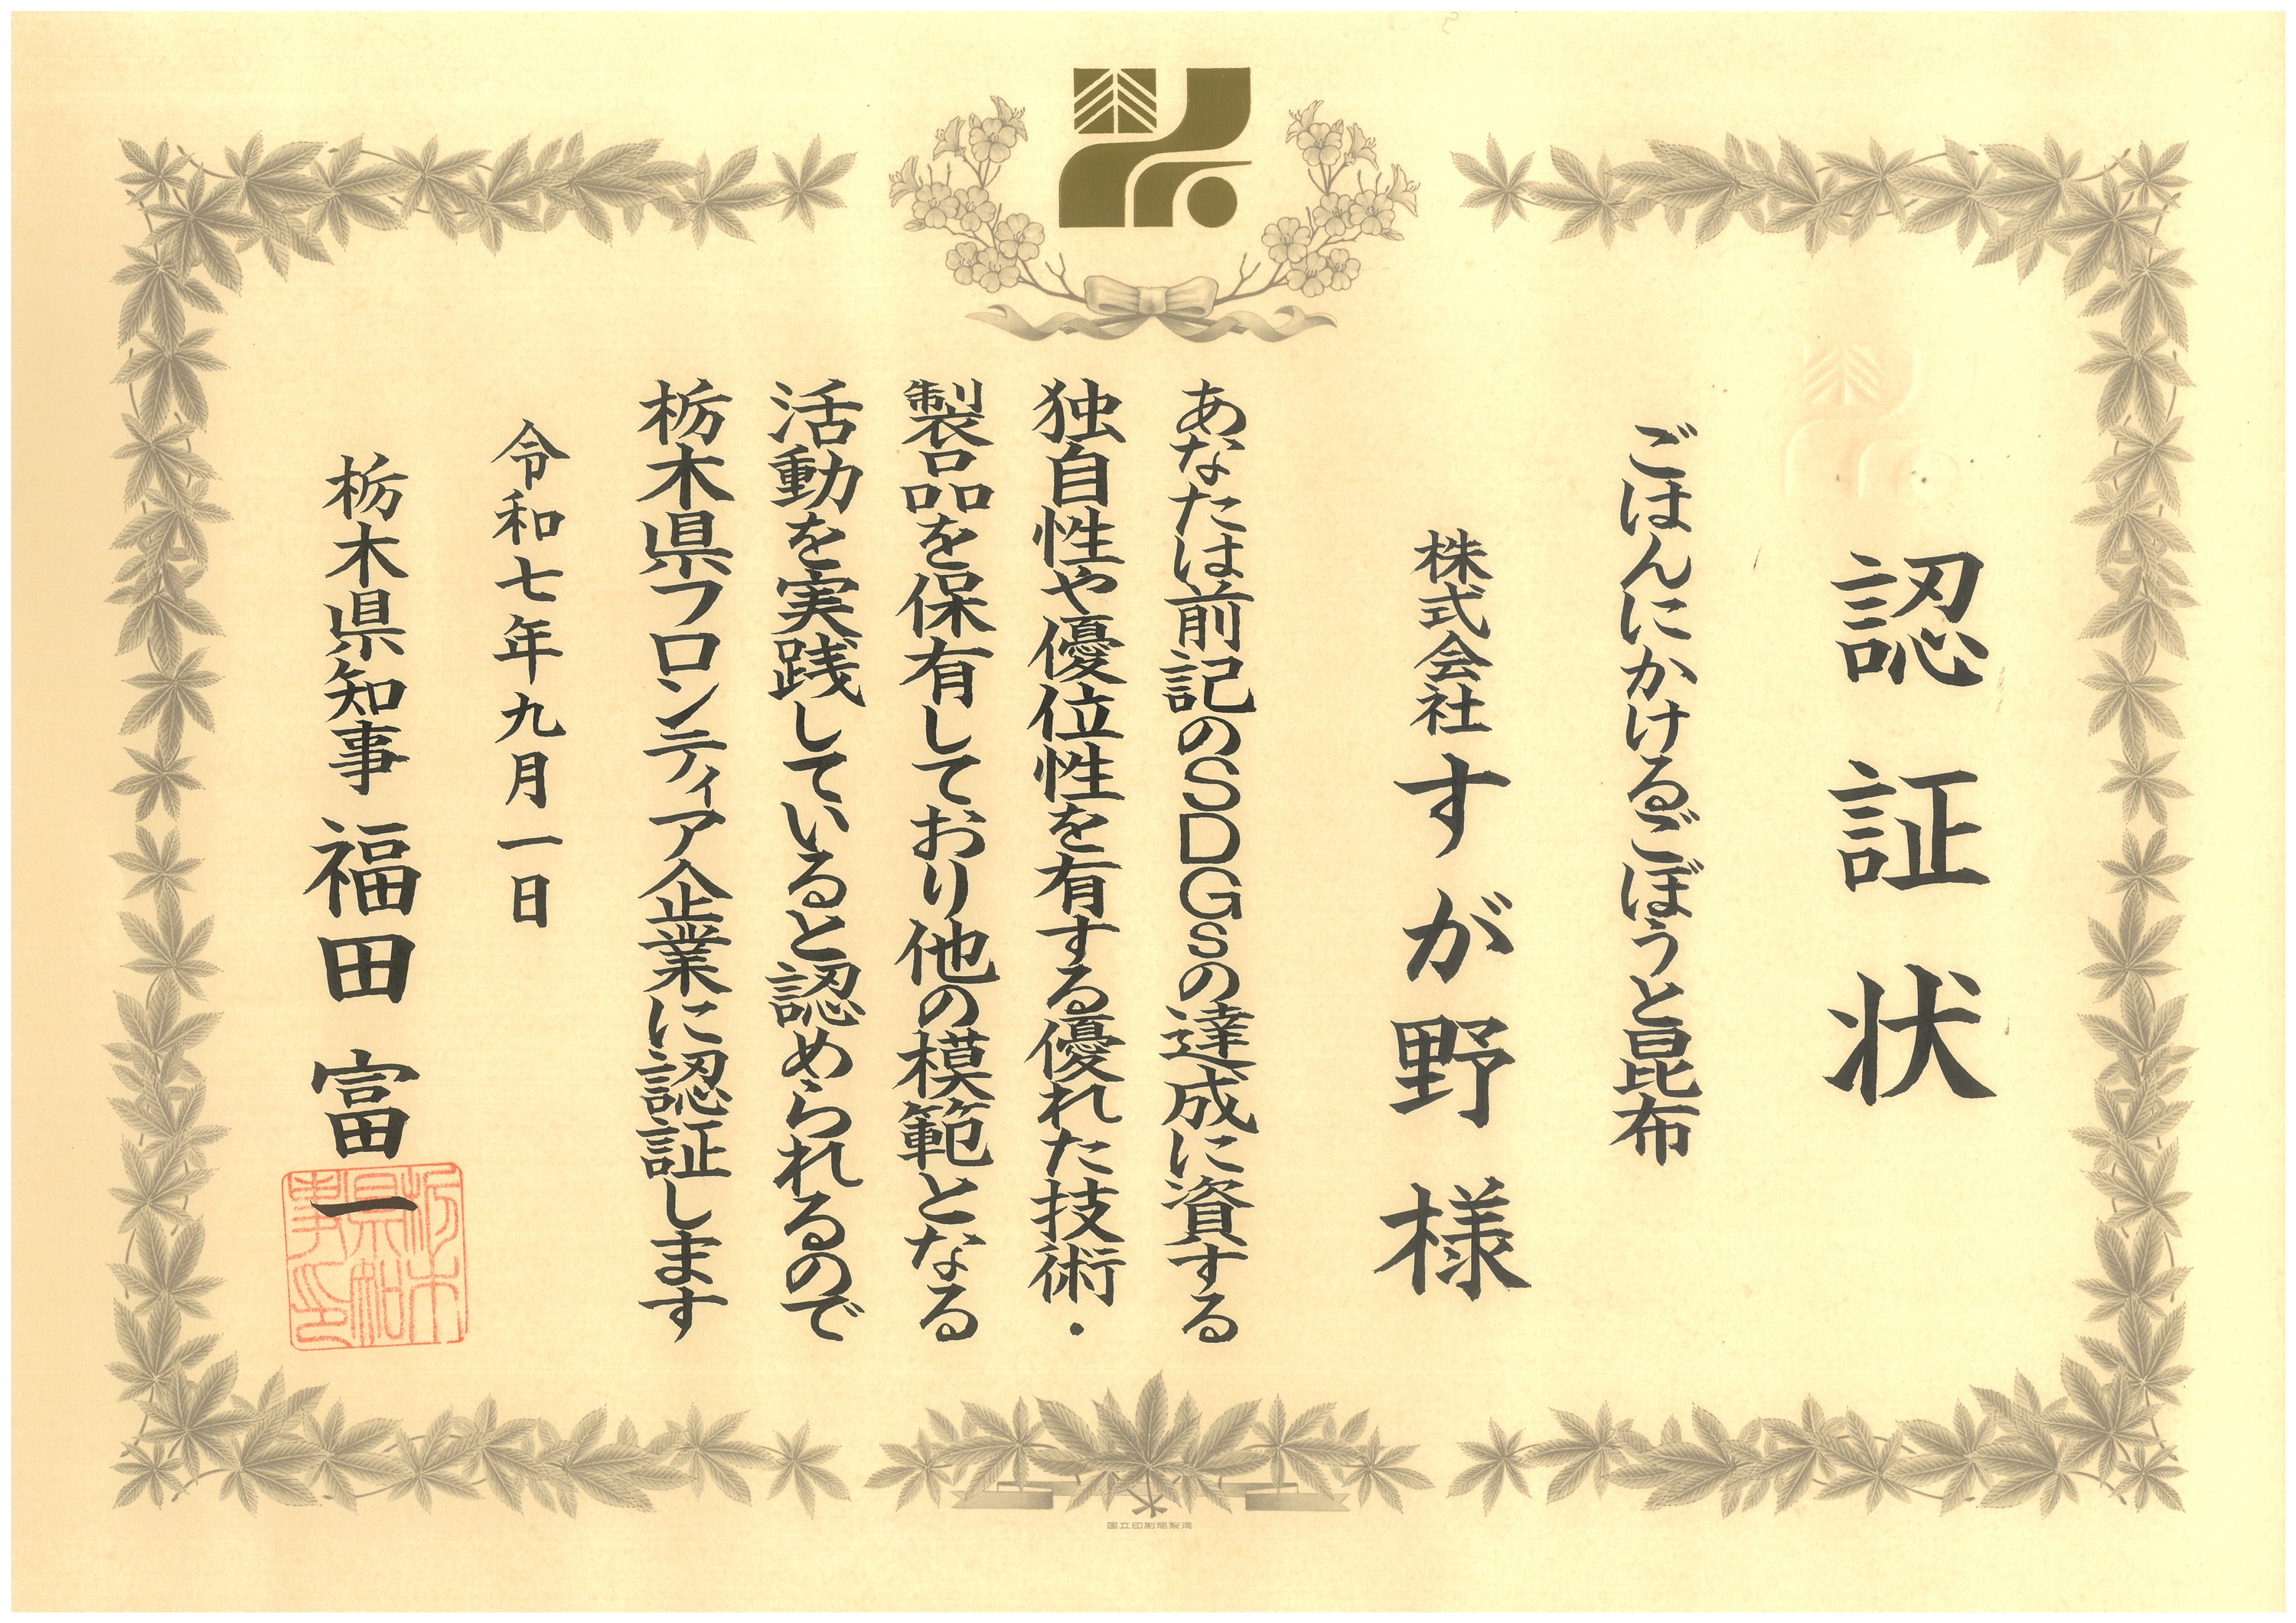 認証状
ごはんにかけるごぼうと昆布
株式会社すが野様
あなたは前記のSDGsの達成に資する
独自性や優位性を有する優れた技術・
製品を保有しており他の模範となる
活動を実践していると認められるので
栃木県フロンティア企業に認証します
令和七年九月一日
栃木県知事 福田富一
栃木県知事印
国立印刷局製造